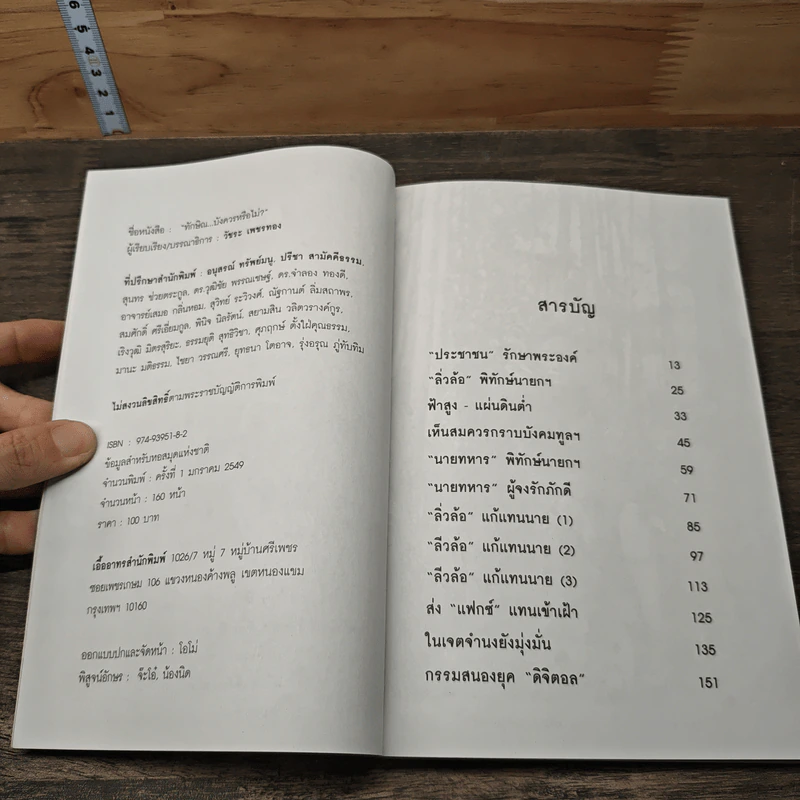 6 5 4 3 2 1
ชื่อหนังสือ : "ทักษิณ...บังควรหรือไม่?"
ผู้เรียบเรียง/บรรณาธิการ : วัชระ เพชรทอง
ที่ปรึกษาสำนักพิมพ์ : อนุสรณ์ ทรัพย์มนู, ปรีชา สามัคคีธรรม,
สุนทร ช่วยตระกูล, ดร.วุฒิชัย พรรณเชษฐ์, ดร.จำลอง ทองดี,
อาจารย์เสมอ กลิ่นหอม, สุวิทย์ ระวิวงศ์, ณัฐกานต์ ลิ่มสถาพร,
สมศักดิ์ ศรีเอี่ยมกูล, พินิจ นิลรัตน์, สยามสิน วลิตวรางค์กูร,
เริงวุฒิ มิตรสุริยะ, ธรรมยุติ สุทธิวิชา, ศุภฤกษ์ ตั้งใฝ่คุณธรรม,
มานะ มติธรรม, ไชยา วรรณศรี, ยุทธนา โตอาจ, รุ่งอรุณ ภู่ทับทิม
ไม่สงวนลิขสิทธิ์ตามพระราชบัญญัติการพิมพ์
ISBN : 974-93951-8-2
ข้อมูลสำหรับหอสมุดแห่งชาติ
จำนวนพิมพ์ : ครั้งที่ 1 มกราคม 2549
จำนวนหน้า : 160 หน้า
ราคา : 100 บาท
เอื้ออาทรสำนักพิมพ์ 1026/7 หมู่ 7 หมู่บ้านศรีเพชร
ซอยเพชรเกษม 106 แขวงหนองค้างพลู เขตหนองแขม
กรุงเทพฯ 10160
ออกแบบปกและจัดหน้า : โอโม่
พิสูจน์อักษร : จ๊ะโอ๋, น้องนิด
สารบัญ
"ประชาชน" รักษาพระองค์ 13
"ลิ่วล้อ" พิทักษ์นายกฯ 25
ฟ้าสูง - แผ่นดินต่ำ 33
เห็นสมควรกราบบังคมทูลฯ 45
"นายทหาร" พิทักษ์นายกฯ 59
"นายทหาร" ผู้จงรักภักดี 71
"ลิ่วล้อ" แก้แทนนาย (1) 85
"ลิ่วล้อ" แก้แทนนาย (2) 97
"ลิ่วล้อ" แก้แทนนาย (3) 113
ส่ง "แฟกซ์" แทนเข้าเฝ้า 125
ในเจตจำนงยังมุ่งมั่น 135
กรรมสนองยุค "ดิจิตอล" 151